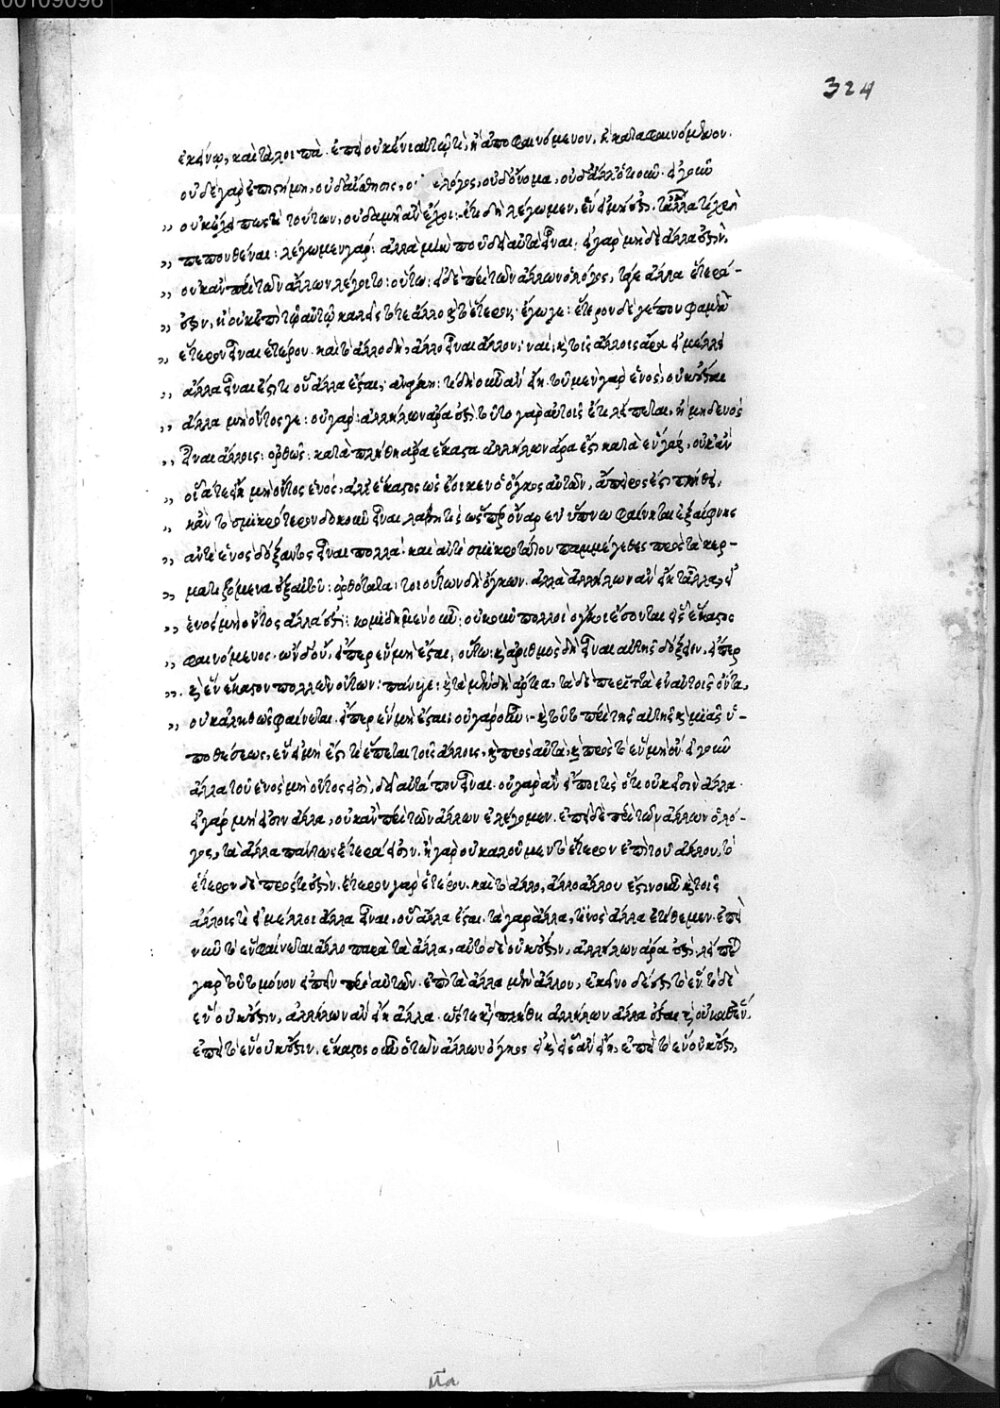 00109098
324
ἐκείνῳ, καὶ τὰ λοιπά. ἐπεὶ οὐκ ἔνι αὐτῷ τὶ, ἢ ἀποφαινόμενον, ἢ καταφαινόμενον.
οὐδὲ γὰρ ἐπιστήμη, οὐδ' αἴσθησις, ο λόγος, οὐδ' ὄνομα, οὐδ' ἄλλο ὁτιοῦν. εἰ γοῦν
,, οὐκ ἔχει πως τὶ τούτων, οὐδαμῇ ἂν ἔχοι: ἔτι δὴ λέγωμεν, ἓν εἰ μή ἐστι, τἄλλα τί χρὴ
,, πεπονθέναι: λέγωμεν γάρ: ἄλλα μὲν που δεῖ αὐτὰ εἶναι: εἰ γὰρ μηδὲ ἄλλα ἐστίν,
,, οὐκ ἂν περὶ τῶν ἄλλων λέγοιτο: οὕτω: εἰ δὲ περὶ τῶν ἄλλων ὁ λόγος, τά γε ἄλλα ἕτερά-
,, ἐστιν, ἢ οὐκ ἐπὶ τῷ αὐτῷ καλεῖς τό τε ἄλλο καὶ τὸ ἕτερον; ἔγωγε: ἕτερον δέ γέ που φαμὲν
,, ἕτερον εἶναι ἑτέρου. καὶ τὸ ἄλλο δὴ, ἄλλο εἶναι ἄλλου; ναί: καὶ τοῖς ἄλλοις ἄρα εἰ μέλλει
,, ἄλλα εἶναι ἔστι τι οὗ ἄλλα ἔσται; ἀνάγκη: τί δὴ οὖν ἂν εἴη. τοῦ μὲν γὰρ ἑνὸς, οὐκ ἔσται
,, ἄλλα μὴ ὄντος γε: οὐ γάρ: ἀλλήλων ἄρα ἐστί. τοῦτο γὰρ αὐτοῖς ἔτι λείπεται, ἢ μηδενὸς
,, εἶναι ἄλλοις: ὀρθῶς: κατὰ πλήθη ἄρα ἕκαστα ἀλλήλων ἄρα ἐστὶ. κατὰ ἓν γὰρ, οὐκ ἂν
,, οἷά τε εἴη μὴ ὄντος ἑνός, ἀλλ' ἕκαστος ὡς ἔοικεν ὁ ὄγκος αὐτῶν, ἄπειρός ἐστι πλήθει,
,, κἂν τὸ σμικρότερον δοκοῦν εἶναι λάβῃ τις ὥσπερ ὄναρ ἐν ὕπνῳ φαίνεται ἐξαίφνης
,, ἀντὶ ἑνὸς δόξαντος εἶναι πολλά. καὶ ἀντὶ σμικροτάτου παμμέγεθες πρὸς τὰ κερ-
,, ματιζόμενα ἐξ αὐτοῦ: ὀρθότατα: τοιούτων δὴ ὄγκων. ἄλλα ἀλλήλων ἂν εἴη τἄλλα, εἰ
,, ἑνὸς μὴ ὄντος ἄλλα ἐστί: κομιδῇ μὲν οὖν: οὐκοῦν πολλοὶ ὄγκοι ἔσονται εἷς ἕκαστος
,, φαινόμενος. ὢν δ' οὔ, εἴπερ ἓν μὴ ἔσται, οὕτω: καὶ ἀριθμὸς δὴ εἶναι αὐτῆς δόξειν, εἴπερ
,, καὶ ἓν ἕκαστον πολλῶν ὄντων: πάνυ γε: καὶ τὰ μὲν δὴ ἄρτια, τὰ δὲ περιττὰ ἐν αὐτοῖς ὄντα,
,, οὐκ ἀληθῶς φαίνεται. εἴπερ ἓν μὴ ἔσται: οὐ γὰρ οὖν:- καὶ τοῦτο περὶ τῆς αὐτῆς καὶ μιᾶς ὑ-
ποθέσεως, ἓν εἰ μή ἐστι τί ἕπεται τοῖς ἄλλοις, καὶ πρὸς αὐτὰ, καὶ πρὸς τὸ ἓν μὴ ὄν. εἰ γοῦν
ἄλλα τοῦ ἑνὸς μὴ ὄντος ἐστὶ, δεῖ αὐτά που εἶναι. οὐ γὰρ ἂν εἴποι τις ὅτι οὐκ ἔστιν ἄλλα.
εἰ γὰρ μή ἐστιν ἄλλα, οὐκ ἂν περὶ τῶν ἄλλων ἐλέγομεν. ἐπεὶ δὲ περὶ τῶν ἄλλων ὁ λό-
γος, τὰ ἄλλα πάντως ἕτερά ἐστιν. ἢ γὰρ οὐ καλοῦμεν τὸ ἕτερον ἐπὶ τοῦ ἄλλου, τὸ
ἕτερον δὲ πρός τί ἐστιν. ἕτερον γὰρ ἑτέρου. καὶ τὸ ἄλλο, ἄλλο ἄλλου ἐστὶν οὖν καὶ τοῖς
ἄλλοις τὶ εἰ μέλλοι ἄλλα εἶναι, οὗ ἄλλα ἔσται. τὰ γὰρ ἄλλα, τινὸς ἄλλα ἐτίθεμεν. ἐπεὶ
νῦν τὸ ἓν φαίνεται ἄλλο παρὰ τὰ ἄλλα, αὐτὸ δὲ οὐκ ἔστιν, ἀλλήλων ἄρα ἐστὶ. λείπεται
γὰρ τοῦτο μόνον εἰπεῖν περὶ αὐτῶν. ἐπεὶ τὰ ἄλλα μὲν ἄλλου, ἐκεῖνο δέ ἐστι τὸ ἓν. τὸ δὲ
ἓν οὐκ ἔστιν, ἀλλήλων ἂν εἴη ἄλλα. ὥστε καὶ πλήθη ἀλλήλων ἄλλα ἔσται καὶ οὐ καθ' ἕν.
ἐπεὶ τὸ ἓν οὐκ ἔστιν. ἕκαστος οὖν ὁ τῶν ἄλλων ὄγκος εἰ καὶ εἷς ἂν εἴη, ἐπεὶ τὸ ἓν οὐκ ἔστι,